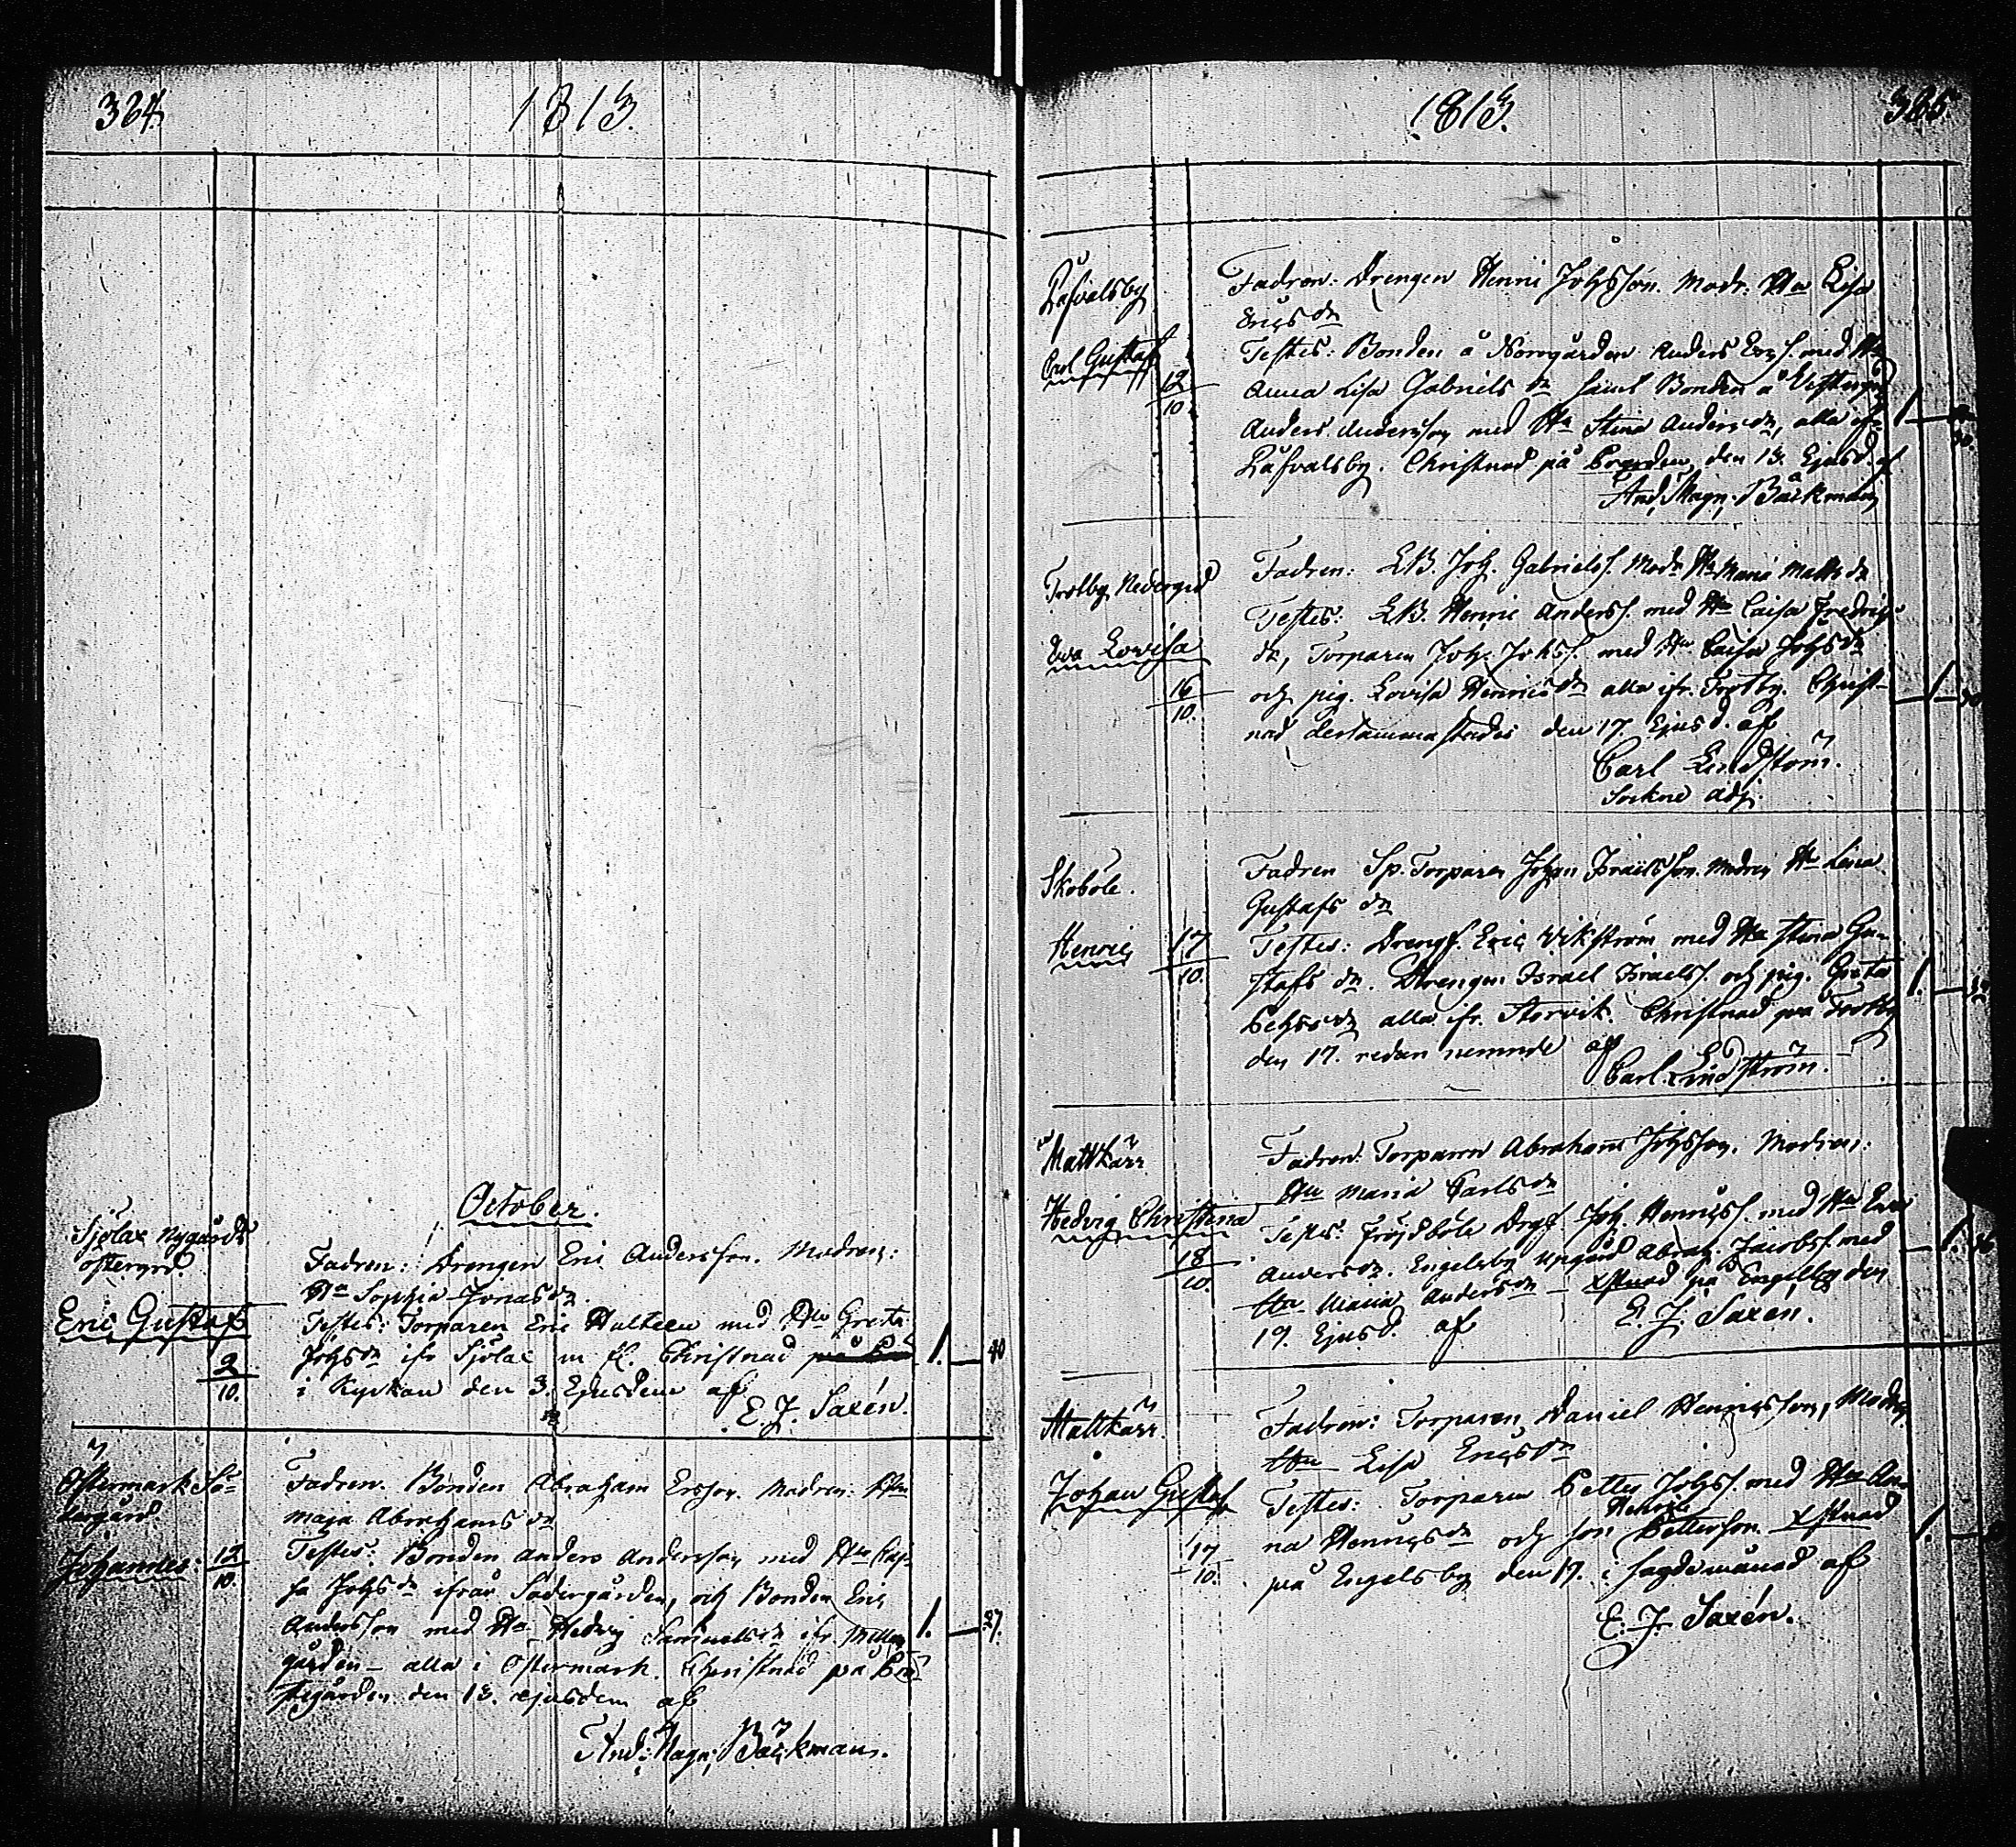 324.
1813.
October.
Sjölax Nygårds
östergrd.
Eric Gustaf
2
10.
Fadren: Drengen Eric Andersson. Modren:
Hu Sophia Jonas dr.
Testes: Torparen Eric Hulteen med Hu Greta
Johs dr ifr Sjölax m fl. Christnad på
i Kyrkan den 3. Ejusdem af
E. J. Saxén.
1.
40
Östermark Sö-
dergård.
Johannes.
12
10.
Fadren. Bonden Abraham Ersson. Modren: Hu
Maja Abrahams dr
Testes: Bonden Anders Andersson med Hu Caj-
sa Johs dr ifrån Södergården, och Bonden Eric
Andersson med Hu Hedvig Samuels dr ifr. Mellan
gården – alla i Östermark. Christnad på Pre-
stegården den 13. ejusdem af
And: Magn: Bäckman.
1.
27.
1813.
325.
Råfvalsby
Carl Gustaf
12
10
Fadren: Drengen Henric Johsson. Modr: Hu Lisa
Erics dr
Testes: Bonden å Norrgården Anders Ers. med Hu
Anna Lisa Gabriels dr samt Bonden å Vestergrd
Anders Andersson med Hu Stina Anders dr, alla ifr
Råfvalsby. Christnad på den 13. Ejusd. af
And. Magn. Bäckman
1.
Trotby Nedergrd
Eva Lovisa
16
10.
Fadren: LB. Joh. Gabriels. Modr Hu Maria Matts dr
Testes: LB. Henric Anderss. med Hu Caisa Fredrics
dr, Torparen Joh. Johss. med Hu Caisa Johs dr
och pig. Lovisa Henrics dr alla ifr. Trotby. Christ-
nad dersammastädes den 17. Ejusd. af
Carl Lindström.
Sockne adj.
1.
Skoböle.
Henric
17
10.
Fadren Sp. Torparen Johan Israelsson. Modren Hu Lena
Gustafs dr
Testes: Drengs. Eric Vikström med Hu Stina Gu-
stafs dr. Drengen Israel Israelss. och pig. Greta
alla ifr. Storvik. Christnad på Trotby
den 17. redan nemnde af
Carl Lindström.
1.
Mattkärr
Hedvig Christina
18
10.
Fadren: Torparen Abraham Johsson. Modren:
Hu Maria Carls dr
Testes: Fröjdböle Drgs. Joh. Henricss. med Hu Eva
Anders dr. Engelsby Upgård Abrah. Jacobss. med
Hu Maria Anders dr – xstnad på Engelsby den
19. Ejusd. af
E. J. Saxen.
1.
36
Mattkärr.
Johan Gustaf
17
10.
Fadren: Torparen Daniel Henricsson, Modren
Hu Lisa Erics dr
Testes: Torparen Petter Johss. med Hu An-
na Henrics dr och son Henric Pettersson. xstnad
på Engelsby den 19. i sagde månad af
E. J. Saxén.
1.